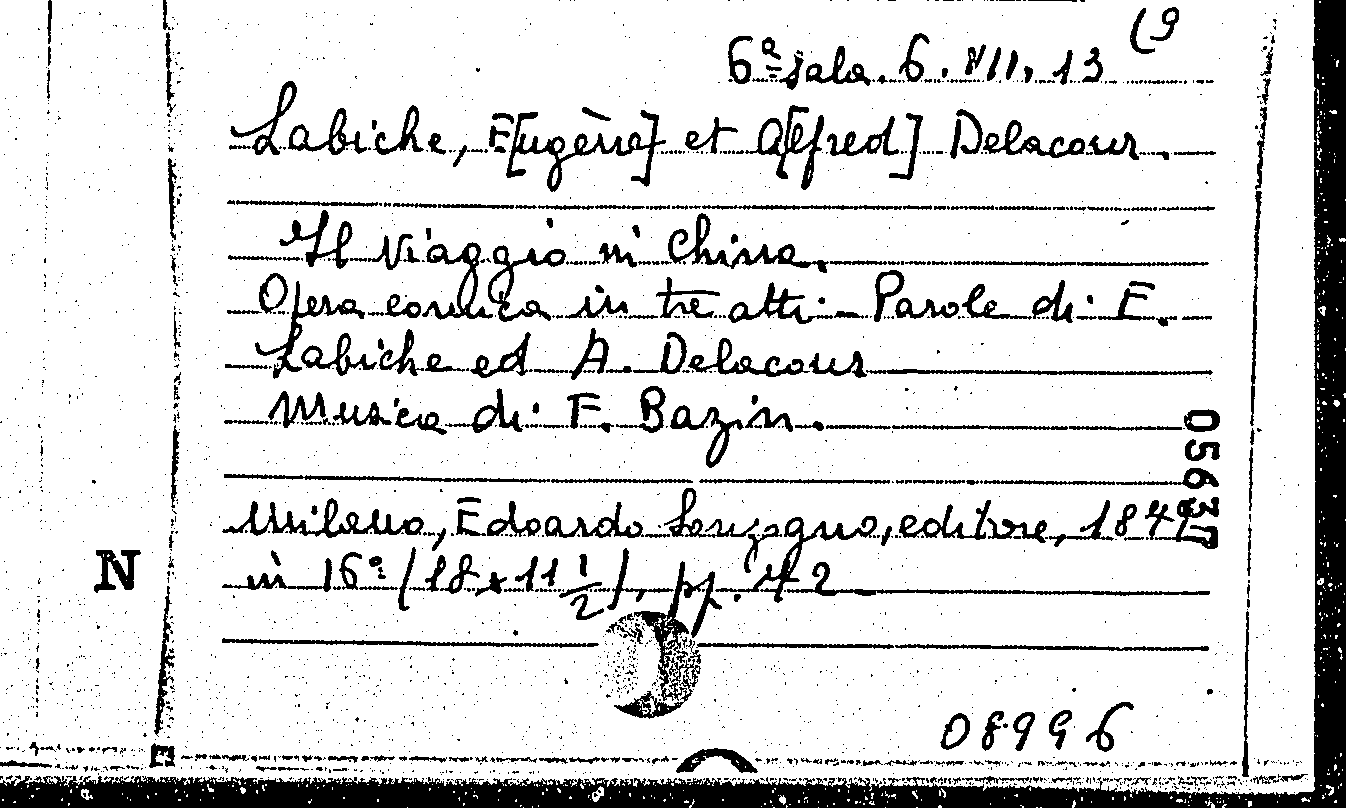 (9
6ª sala. 6. VII. 13
Labiche, E[ugène] et A[lfred] Delacour.
Il Viaggio in China.
Opera comica in tre atti - Parole di E.
Labiche ed A. Delacour
Musica di F. Bazin.
Milano, Edoardo Sonzogno, editore,
in 16º (18 x 11 1/2), pp. 42
N
08996